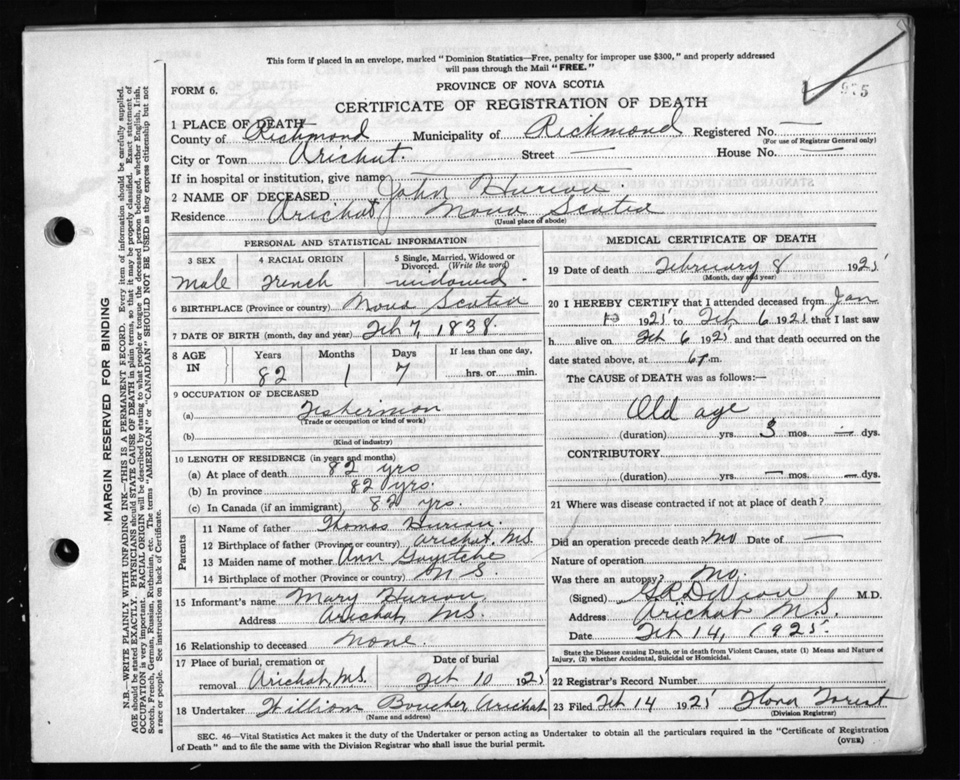 This form if placed in an envelope, marked "Dominion Statistics—Free, penalty for improper use $300," and properly addressed
will pass through the Mail "FREE."
975
FORM 6.
PROVINCE OF NOVA SCOTIA
CERTIFICATE OF REGISTRATION OF DEATH
1 PLACE OF DEATH
County of Richmond Municipality of Richmond Registered No. —
(For use of Registrar General only)
City or Town Arichat. Street — House No. —
If in hospital or institution, give name
2 NAME OF DECEASED John Hureau.
Residence Arichat Nova Scotia
(Usual place of abode)
PERSONAL AND STATISTICAL INFORMATION
3 SEX 4 RACIAL ORIGIN 5 Single, Married, Widowed or
Divorced. (Write the word)
Male French widowed.
6 BIRTHPLACE (Province or country) Nova Scotia
7 DATE OF BIRTH (month, day and year) Feb 7, 1838.
8 AGE IN Years Months Days If less than one day,
82 1 7 hrs. or min.
9 OCCUPATION OF DECEASED
(a) Fisherman
(Trade or occupation or kind of work)
(b)
(Kind of industry)
10 LENGTH OF RESIDENCE (in years and months)
(a) At place of death 82 yrs
(b) In province 82 yrs.
(c) In Canada (if an immigrant) 82 yrs.
Parents
11 Name of father Thomas Hureau.
12 Birthplace of father (Province or country) Arichat, N.S.
13 Maiden name of mother Ann
14 Birthplace of mother (Province or country) N S.
15 Informant's name Mary Hureau.
Address Arichat, N.S.
16 Relationship to deceased None.
17 Place of burial, cremation or Date of burial
removal Arichat, N.S. Feb 10 1925
18 Undertaker William Boucher, Arichat
(Name and address)
MEDICAL CERTIFICATE OF DEATH
19 Date of death February 8 1925
(Month, day and year)
20 I HEREBY CERTIFY that I attended deceased from Jan
1925 to Feb, 6 1925 that I last saw
h alive on Feb 6 1925 and that death occurred on the
date stated above, at m.
The CAUSE of DEATH was as follows:—
Old age
(duration) yrs. 3 mos. — dys.
CONTRIBUTORY
(duration) yrs. — mos. — dys.
21 Where was disease contracted if not at place of death?
Did an operation precede death? No Date of —
Nature of operation
Was there an autopsy? No.
(Signed) M.D.
Address Arichat N.S.
Date Feb 14, 1925
State the Disease causing Death, or in death from Violent Causes, state (1) Means and Nature of
Injury, (2) whether Accidental, Suicidal or Homicidal.
22 Registrar's Record Number
23 Filed Feb 14 1925 Flora
(Division Registrar)
SEC. 46—Vital Statistics Act makes it the duty of the Undertaker or person acting as Undertaker to obtain all the particulars required in the "Certificate of Registration
of Death" and to file the same with the Division Registrar who shall issue the burial permit.
(OVER)
MARGIN RESERVED FOR BINDING
N.B.—WRITE PLAINLY WITH UNFADING INK—THIS IS A PERMANENT RECORD. Every item of information should be carefully supplied.
AGE should be stated EXACTLY. PHYSICIANS should STATE CAUSE OF DEATH in plain terms, so that it may be properly classified. Exact statement of
OCCUPATION is very important. RACIAL ORIGIN will be described by stating to what people or tongue the deceased person belonged, whether English, Irish,
Scotch, French, German, Russian, Ruthenian, etc. The terms "AMERICAN" or "CANADIAN" SHOULD NOT BE USED as they express citizenship but not
a race or people. See instructions on back of Certificate.